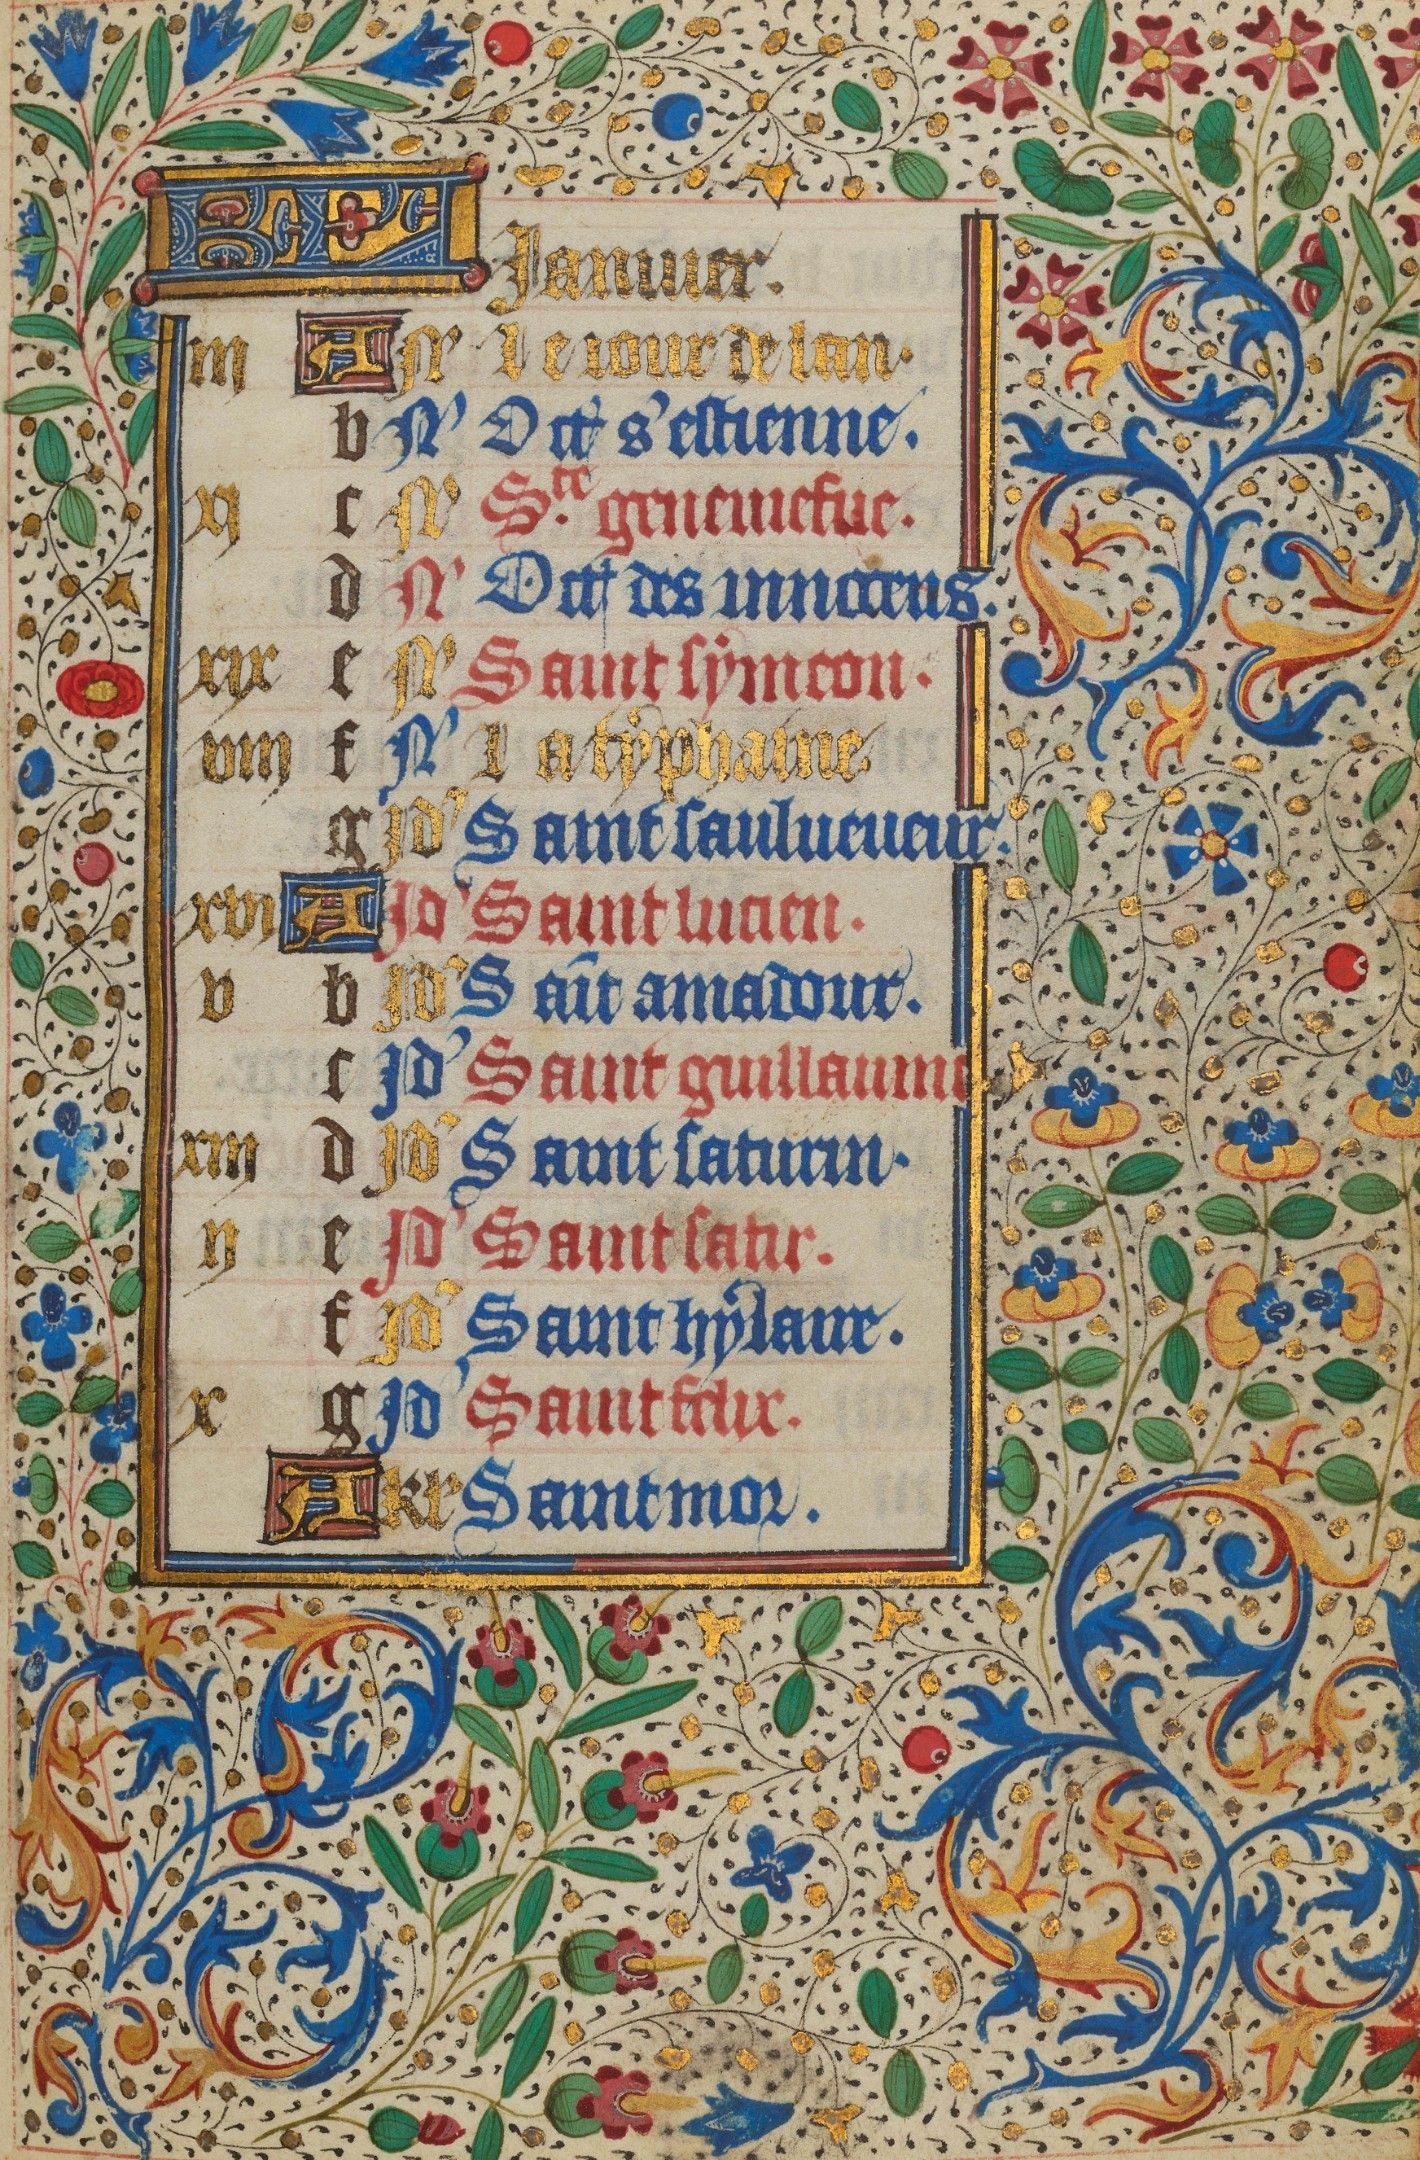 KL Januier.
iii A N' Le iour de lan.
b N' Oct' s' estienne.
xi c N' Ste. geneuiefue.
d N' Oct' des innocens.
xix e N' Saint symeon.
viii f N' La typhaine
g Id' Saint saulueueur.
xvi A Id' Saint lucien.
v b Id' Saīt amadour.
c Id' Saint guillaume
xiii d Id' Saint saturin.
ii e Id' Saint satir.
f Id' Saint hylaire.
x g Id' Saint felix.
A kl' Saint mor.